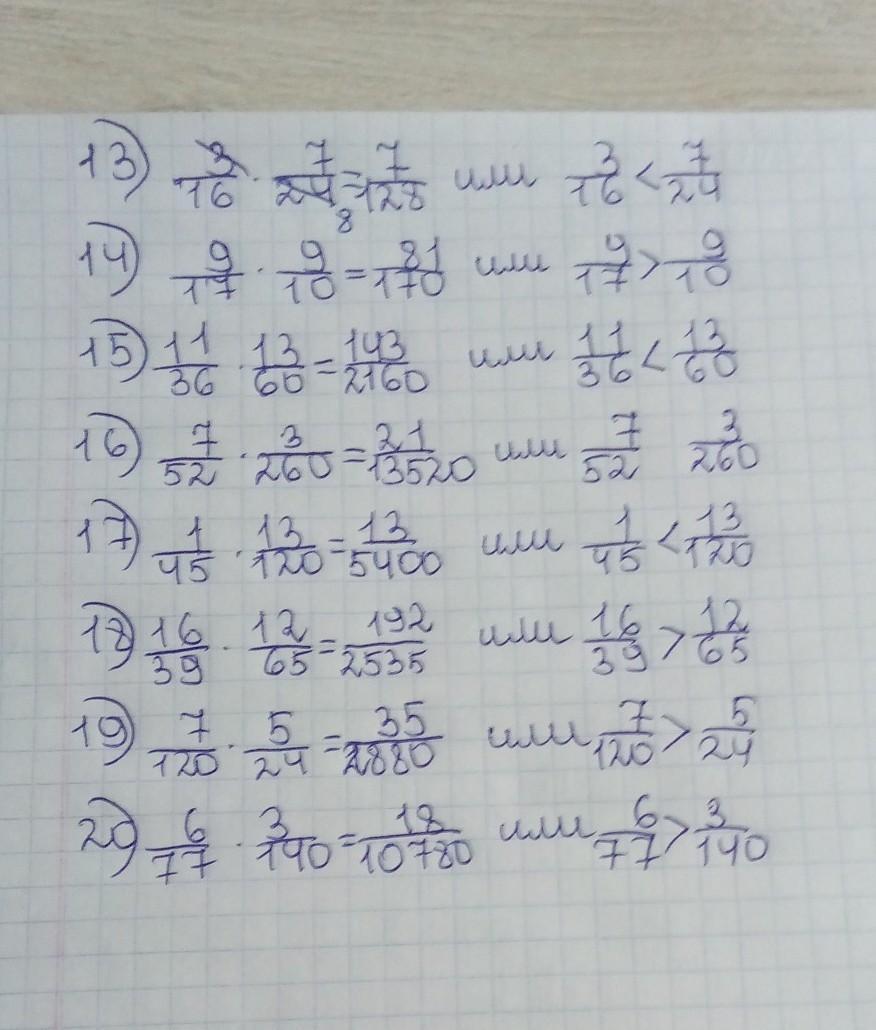 13) 3/16 · 7/24 = 7/128 или 3/16 < 7/24
8
14) 9/17 · 9/10 = 81/170 или 9/17 > 9/10
15) 11/36 · 13/60 = 143/2160 или 11/36 < 13/60
16) 7/52 · 3/260 = 21/13520 или 7/52 3/260
17) 1/45 · 13/120 = 13/5400 или 1/45 < 13/120
18) 16/39 · 12/65 = 192/2535 или 16/39 > 12/65
19) 7/120 · 5/24 = 35/2880 или 7/120 > 5/24
20) 6/77 · 3/140 = 18/10780 или 6/77 > 3/140